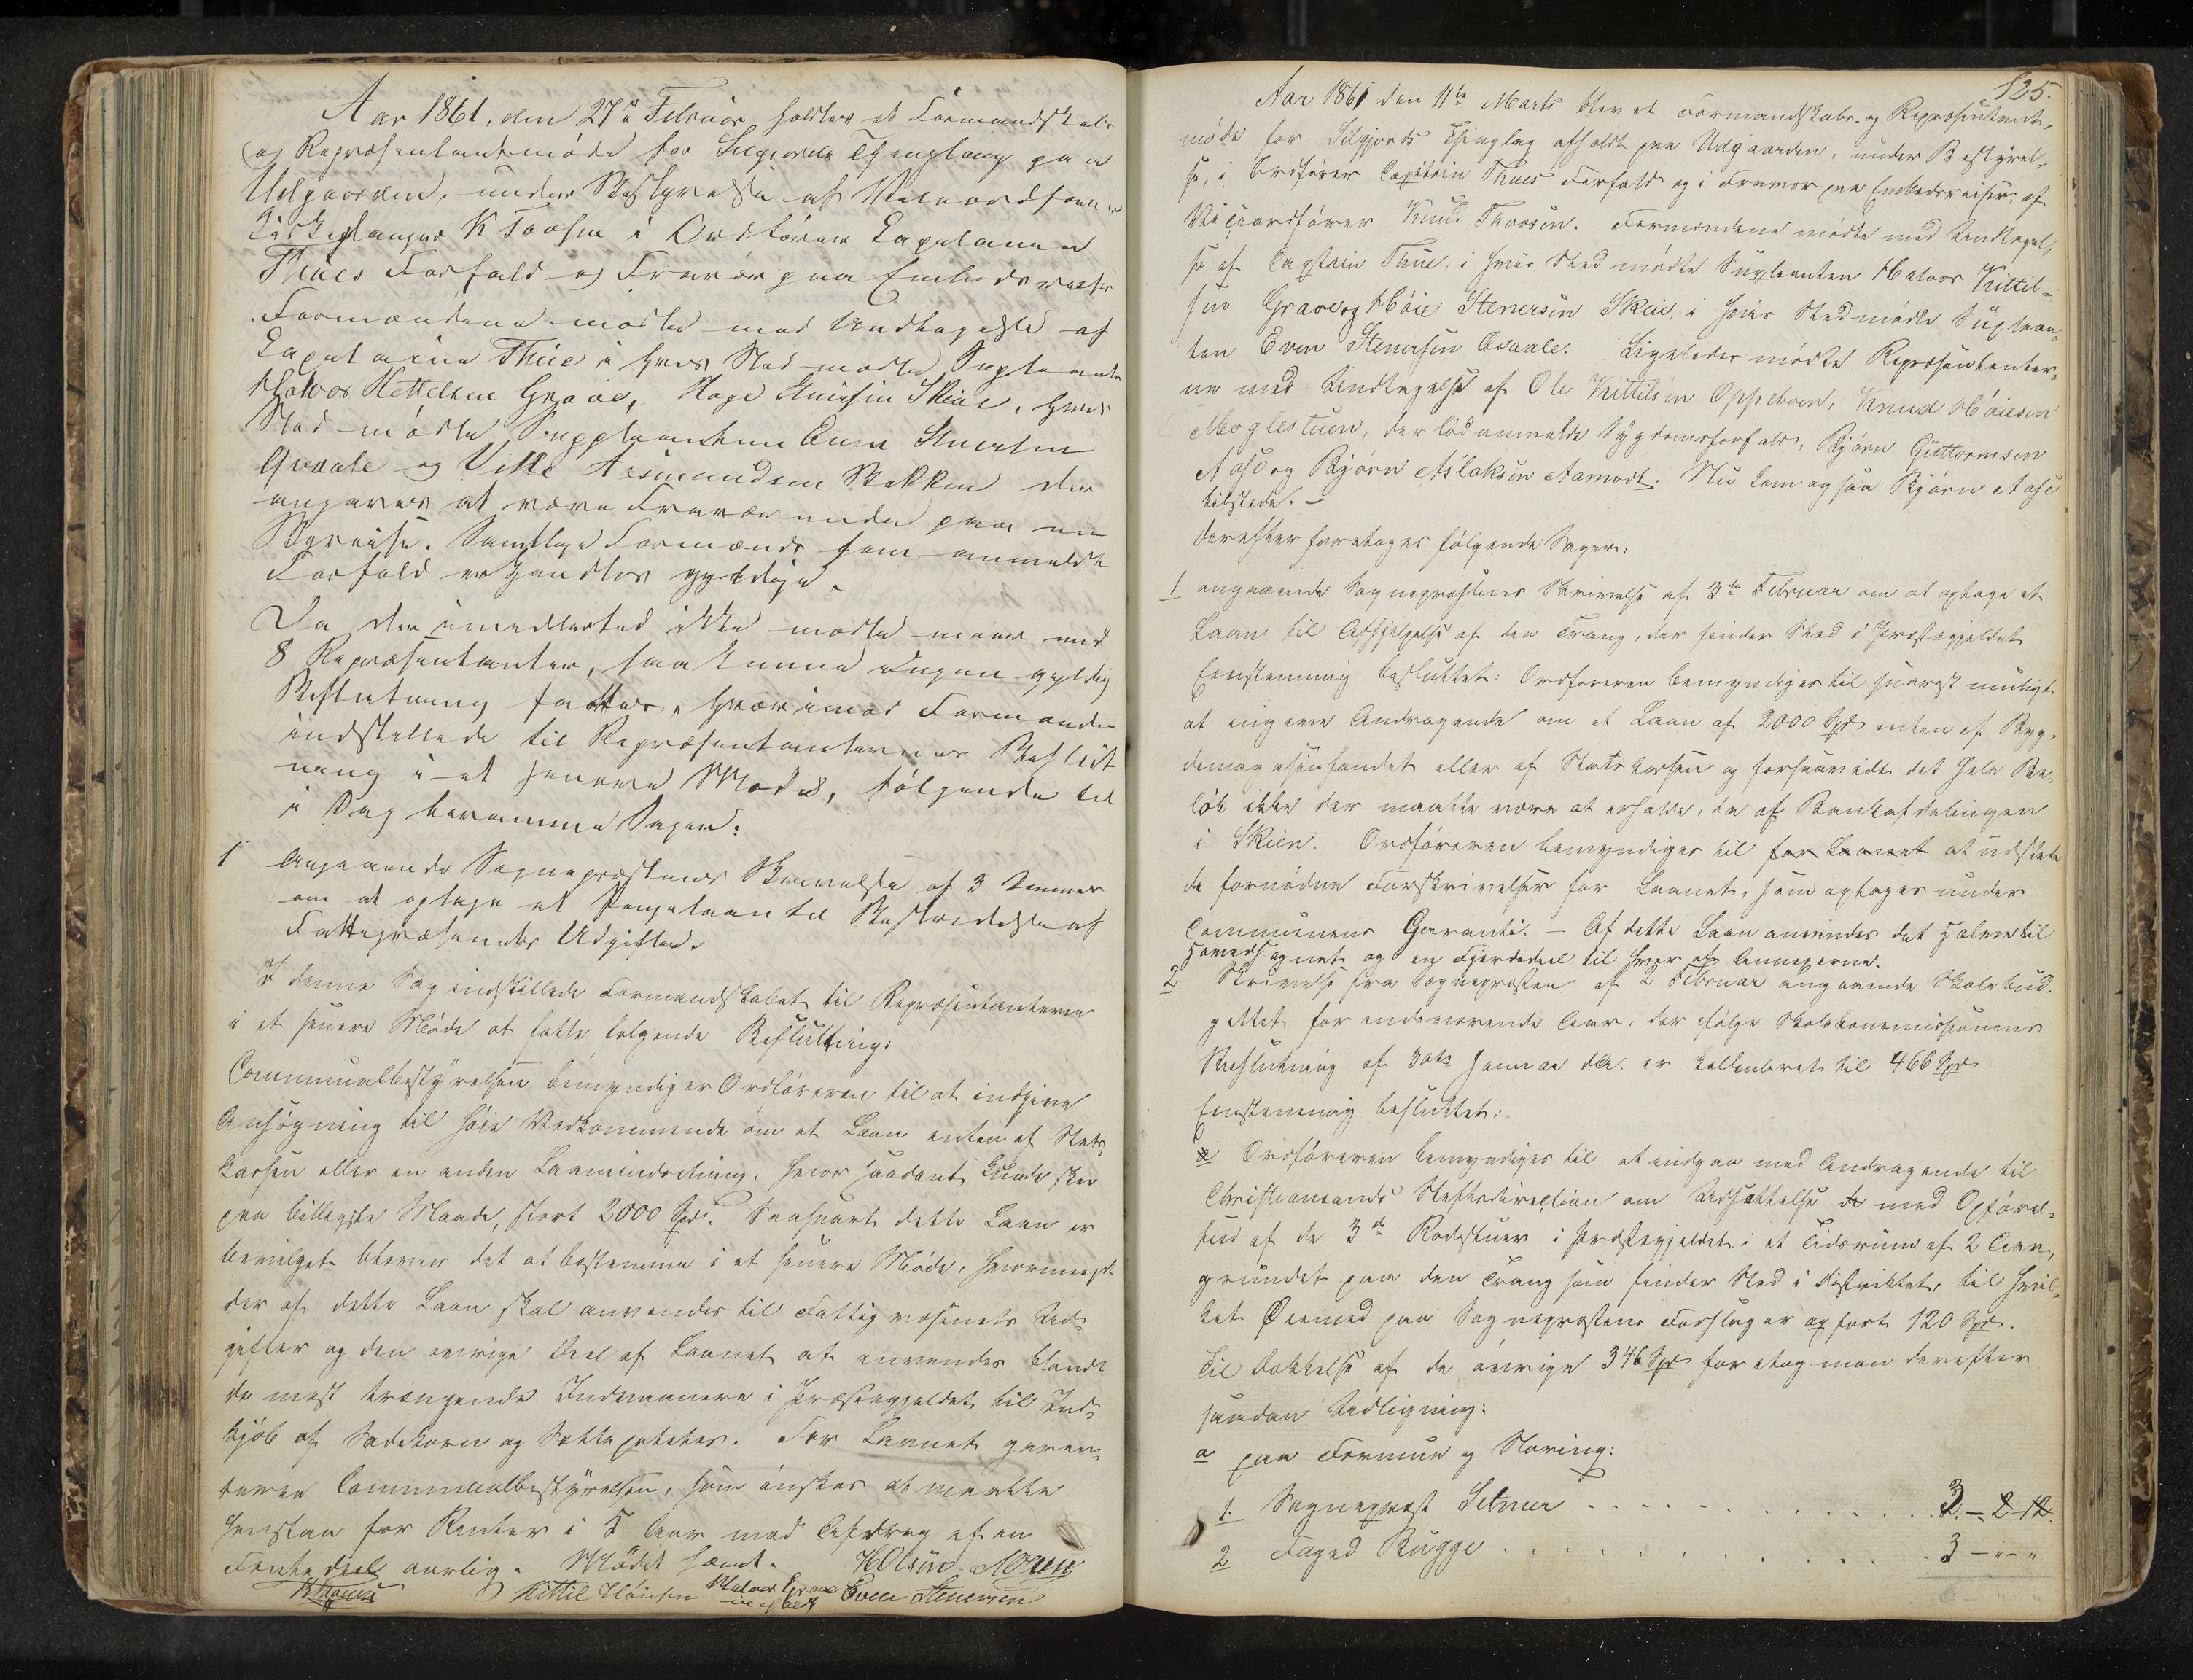 Aar 1861, den 27de Februar, holdtes et Formandskabs
og Repræsentantmøde for Silgjords Thinglaug paa
Udgaarden, under Bestyrelse af Viceordfører
Kirkesanger K Torsen i Ordfører Capitainen
Thues Forfald og Fravær paa Embedsreiser
Formændene mødte med Undtagelse af
Capitaine Thue i hvis Sted mødte Supleanten
Halvor Kettilsen Graver, Høye Stenersen Skeie, i hvis
Sted mødte Suppleanten Even Stenersen
Qvaale og Vetle Aasmundsen Bakken der
angaves at være Fraværende paa en
Byreise. Samtlige Formænds som anmeldte
Forfald erkjendtes gyldige.
Da der imidlertid ikke mødte mere end
8 Repræsentanter, saa kunne ingen gyldig
Beslutning fattes, hvorimod Formændene
indstillede til Repræsentanternes Beslut
ning i et senere Møde, følgende til
i Dag berammede Sager:
1 Angaaende Sognepræstens Skrivelse af 3
om at optage et Pengelaan til Bestridelse af
Fattigvæsenets Udgifter.
I denne Sag indstillede Formandskabet til Repræsentanterne
i et senere Møde at fatte følgende Beslutning:
Communalbestyrelsen bemyndiger Ordføreren til at indgive
Ansøgning til høie Vedkommende om et Laan enten af Stats-
kassen eller en anden Laaneindretning, hvor saadant kunde skee
paa billigste Maade, stort 2000 Spd. Saasnart dette Laan er
bevilget bliver det at bestemme i et senere Møde, hvormeget
der af dette Laan skal anvendes til Fattigvæsenets Ud-
gifter og den øvrige Deel af Laanet at anvendes blandt
de mest trængende Indvaanere i Præstegjeldet til Ind-
kjøb af Sædekorn og Sættepoteter. For Laanet garan-
terer Communalbestyrelsen, som ønskes at maatte
henstaa for Renter i 5 Aar med Afdrag af en
Femtedeel aarlig. Mødet hævet. HOlsen
Kittil Høiesen Halvor Graver Even Stenersen
825.
Aar 1861 den 11te Marts blev et Formandskabs- og Repræsentant-
møde for Silgjords Thinglag afholdt paa Udgaarden, under Bestyrel-
se, i Ordfører Capitain Thues Forfald og i Fravær paa Embedsreiser, af
Viceordfører Knud Thorsen. Formændene mødte med Undtagel-
se af Captain Thue, i hvis Sted mødte Supleanten Halvor Kittil-
sen Graver og Høie Stenersen Skeie, i hvis Sted mødte Suplean-
ten Even Stenersen Qvaale. Ligeledes mødte Repræsentanter-
ne med Undtagelse af Ole Kittilsen Oppeboen, Knud Høiesen
Moglestuen, der lod anmelde Sygdomsforfald, Bjørn Guttormsen
Aase og Bjørn Aslaksen Aamodt. Nu kom ogsaa Bjørn Aase
tilstede. –
Derefter foretoges følgende Sager:
1 angaaende Sognepræstens Skrivelse af 3de Februar om at optage et
Laan til Afhjelpelse af den Trang, der finder Sted i Præstegjeldet
Eenstemmig besluttet: Ordføreren bemyndiges til snarest muligt
at ingive Andragende om et Laan af 2000 Spd enten af Byg-
demagasinfondet eller af Statskassen og forsaavidt det hele Be-
løb ikke der maatte være at erholde, da af Bankafdelingen
i Skien. Ordføreren bemyndiges til for Laanet at udstede
de fornødne Forskrivelser for Laanet, som optages under
Communens Garanti. – Af dette Laan anvendes det Halve til
Hovedsognet og en Fjerdedeel til hver af Annexerne.
2 Skrivelse fra Sognepræsten af 2 Februar angaaende Skolebud-
gettet for indeværende Aar, der ifølge Skolekommissionens
Beslutning af 30te Januar d.A. er kalkuleret til 466 Spd
Eenstemmig besluttet:
a Ordføreren bemyndiges til at indgaa med Andragende til
Christiansands Stiftsdirection om Udsættelse de med Opførel-
sen af de 3de Rodestuer i Præstegjeldet i et Tidsrum af 2 Aar,
grundet paa den Trang som finder Sted i Distriktet, til hvil-
ket Øiemed paa Sognepræstens Forslag er opført 120 Spd.
Til Dækkelse af de øvrige 346 Spd foretog man derefter
saadan Udligning:
a paa Formue og Næring:
1. Sognepræst Setmer . . . . . . . . 3. – 2 12.
2 Foged Bugge . . . . . . . . 3 – " – "